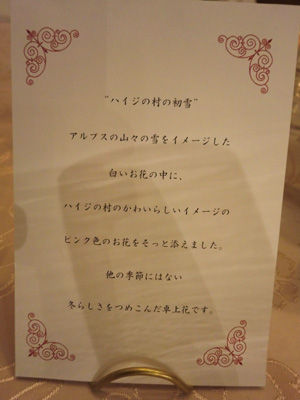 "ハイジの村の初雪"
アルプスの山々の雪をイメージした
白いお花の中に、
ハイジの村のかわいらしいイメージの
ピンク色のお花をそっと添えました。
他の季節にはない
冬らしさをつめこんだ卓上花です。